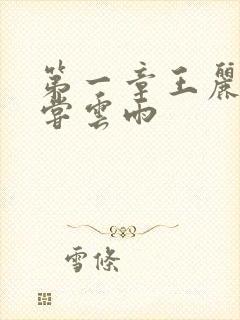 第一章王麗
嘗雲雨
雪條